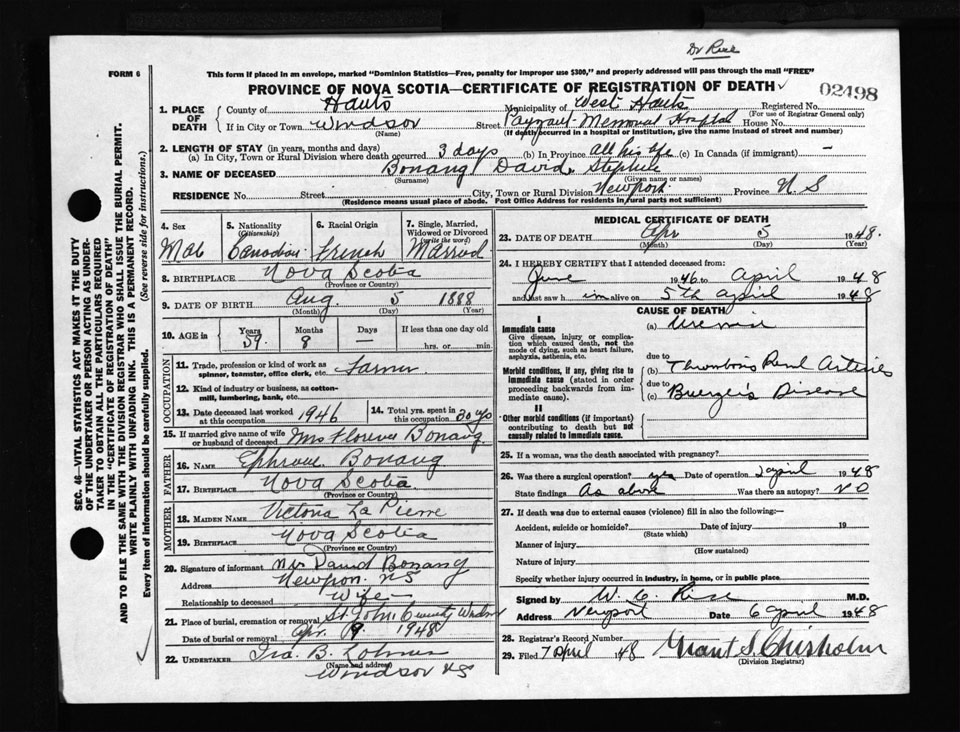 Dr Rice
FORM 6
This form if placed in an envelope, marked "Dominion Statistics—Free, penalty for improper use $300," and properly addressed will pass through the mail "FREE"
PROVINCE OF NOVA SCOTIA—CERTIFICATE OF REGISTRATION OF DEATH
02498
1. PLACE OF DEATH
County of Hants Municipality of West Hants Registered No.
(For use of Registrar General only)
If in City or Town Windsor Street Payzant Memorial Hospital House No.
(Name) (If death occurred in a hospital or institution, give the name instead of street and number)
2. LENGTH OF STAY (in years, months and days)
(a) In City, Town or Rural Division where death occurred 3 days (b) In Province All his life (c) In Canada (if immigrant) —
3. NAME OF DECEASED Bonang David Stephen
(Surname) (Given name or names)
RESIDENCE No. Street City, Town or Rural Division Newport Province N S
(Residence means usual place of abode. Post Office Address for residents in rural parts not sufficient)
4. Sex Male
5. Nationality (Citizenship) Canadian
6. Racial Origin French
7. Single, Married, Widowed or Divorced (write the word) Married
8. BIRTHPLACE Nova Scotia
(Province or Country)
9. DATE OF BIRTH Aug. 5 1888
(Month) (Day) (Year)
10. AGE in Years Months Days If less than one day old
59 8 — hrs. or min.
OCCUPATION
11. Trade, profession or kind of work as spinner, teamster, office clerk, etc. Farmer
12. Kind of industry or business, as cotton-mill, lumbering, bank, etc.
13. Date deceased last worked at this occupation 1946
14. Total yrs. spent in this occupation
15. If married give name of wife or husband of deceased Mrs Florence Bonang
FATHER
16. NAME Bonang
17. BIRTHPLACE Nova Scotia
(Province or Country)
MOTHER
18. MAIDEN NAME Victoria La Pierre
19. BIRTHPLACE Nova Scotia
(Province or Country)
20. Signature of informant Mrs David Bonang
Address Newport NS
Relationship to deceased Wife
21. Place of burial, cremation or removal St John Windsor
Date of burial or removal Apr. 9 1948
22. UNDERTAKER Ira. B.
(Name and address)
Windsor NS
MEDICAL CERTIFICATE OF DEATH
23. DATE OF DEATH Apr 5 1948.
(Month) (Day) (Year)
24. I HEREBY CERTIFY that I attended deceased from:
June 1946 to April 1948
and last saw him alive on 5th April 1948
CAUSE OF DEATH
I
Immediate cause
Give disease, injury or complication which caused death, not the mode of dying, such as heart failure, asphyxia, asthenia, etc.
(a) Uremia
due to
Morbid conditions, if any, giving rise to immediate cause (stated in order proceeding backwards from immediate cause).
(b) Renal Arteries
due to
(c) Buerger's Disease
II
Other morbid conditions (if important) contributing to death but not causally related to immediate cause.
25. If a woman, was the death associated with pregnancy?
26. Was there a surgical operation? yes Date of operation 2 april 1948
State findings As above Was there an autopsy? NO
27. If death was due to external causes (violence) fill in also the following:—
Accident, suicide or homicide? Date of injury 19
(State which)
Manner of injury
(How sustained)
Nature of injury
Specify whether injury occurred in industry, in home, or in public place
Signed by W. C. Rice M.D.
Address Newport Date 6 april 1948
28. Registrar's Record Number
29. Filed 7 April 1948 Grant S. Chisholm
(Division Registrar)
SEC. 46—VITAL STATISTICS ACT MAKES IT THE DUTY
OF THE UNDERTAKER OR PERSON ACTING AS UNDER-
TAKER TO OBTAIN ALL THE PARTICULARS REQUIRED
IN THE "CERTIFICATE OF REGISTRATION OF DEATH"
AND TO FILE THE SAME WITH THE DIVISION REGISTRAR WHO SHALL ISSUE THE BURIAL PERMIT.
WRITE PLAINLY WITH UNFADING INK. THIS IS A PERMANENT RECORD.
Every item of information should be carefully supplied. (See reverse side for instructions.)